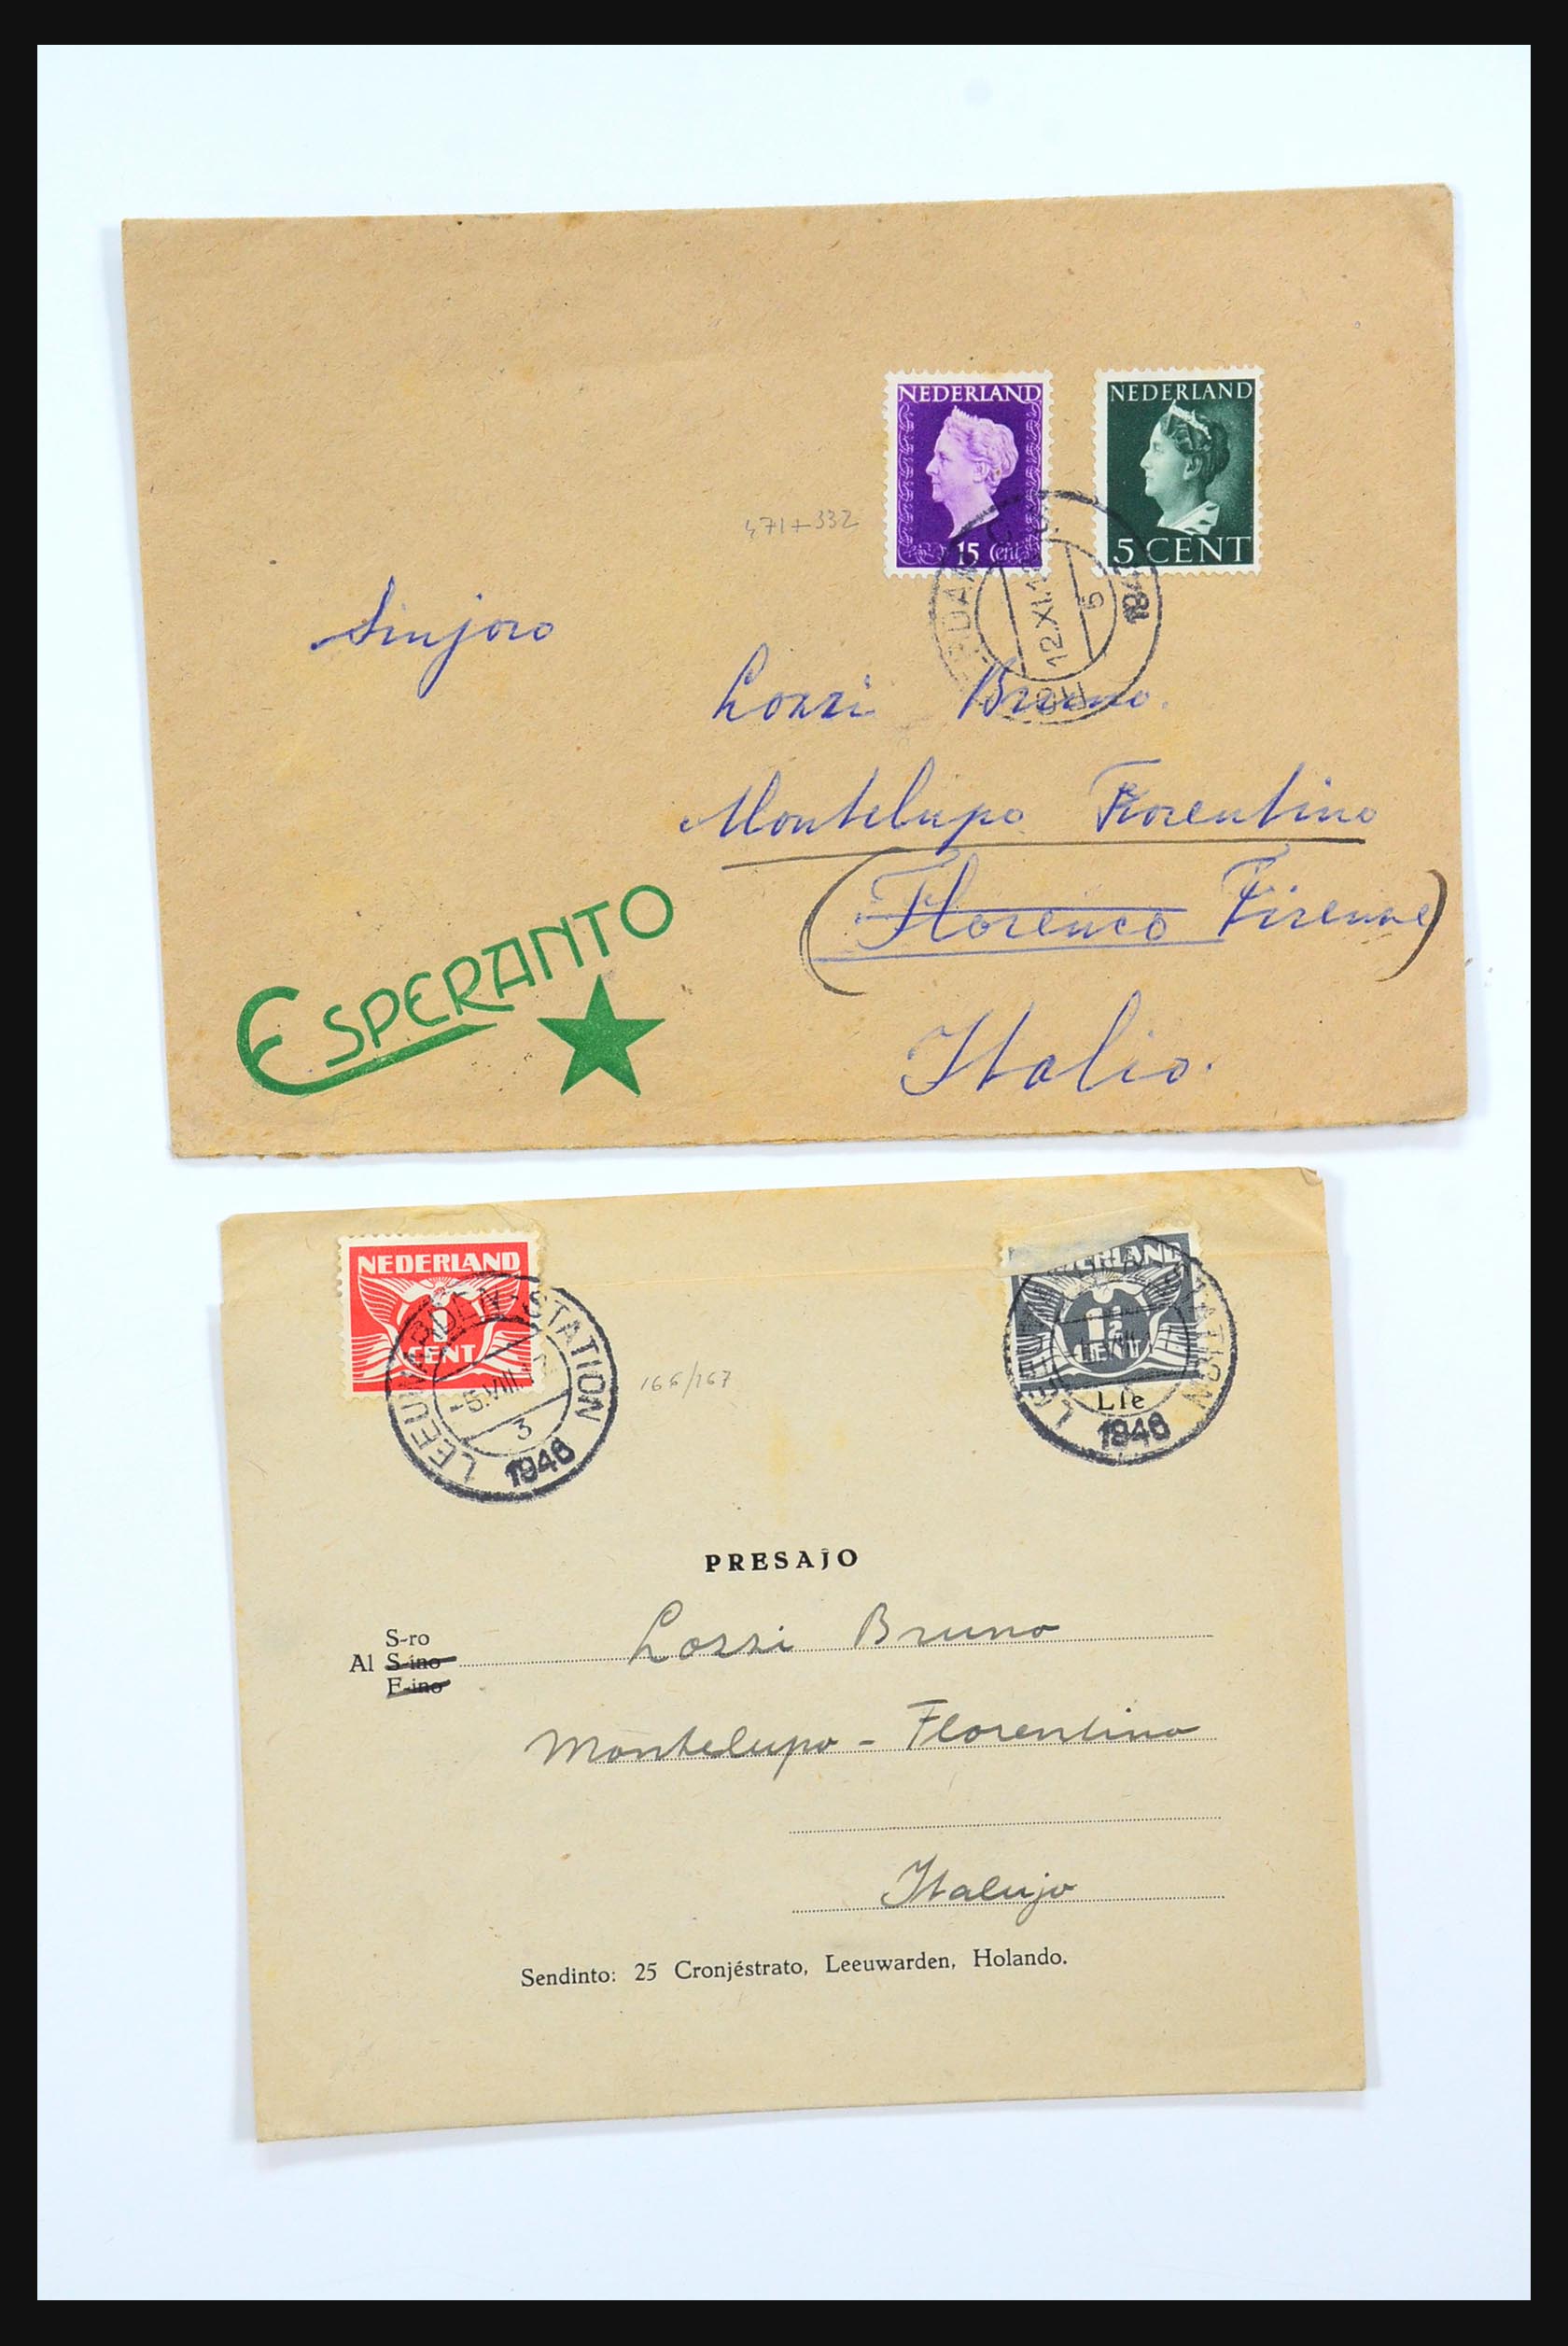 NEDERLAND
15 Cent
NEDERLAND
5 CENT
471+332
12.XI.
5
Sinjoro
Lozzi Bruno.
Montelupo Fiorentino
(Florenco Firenze)
Italio.
ESPERANTO
NEDERLAND
1
CENT
LEEUWARDEN-STATION
-5.VIII.
3
1946
166/167
1½
CENT
STATION
1946
PRESAĴO
S-ro
Al S-ino
F-ino
Lozzi Bruno
Montelupo - Florentino
Italujo
Sendinto: 25 Cronjéstrato, Leeuwarden, Holando.